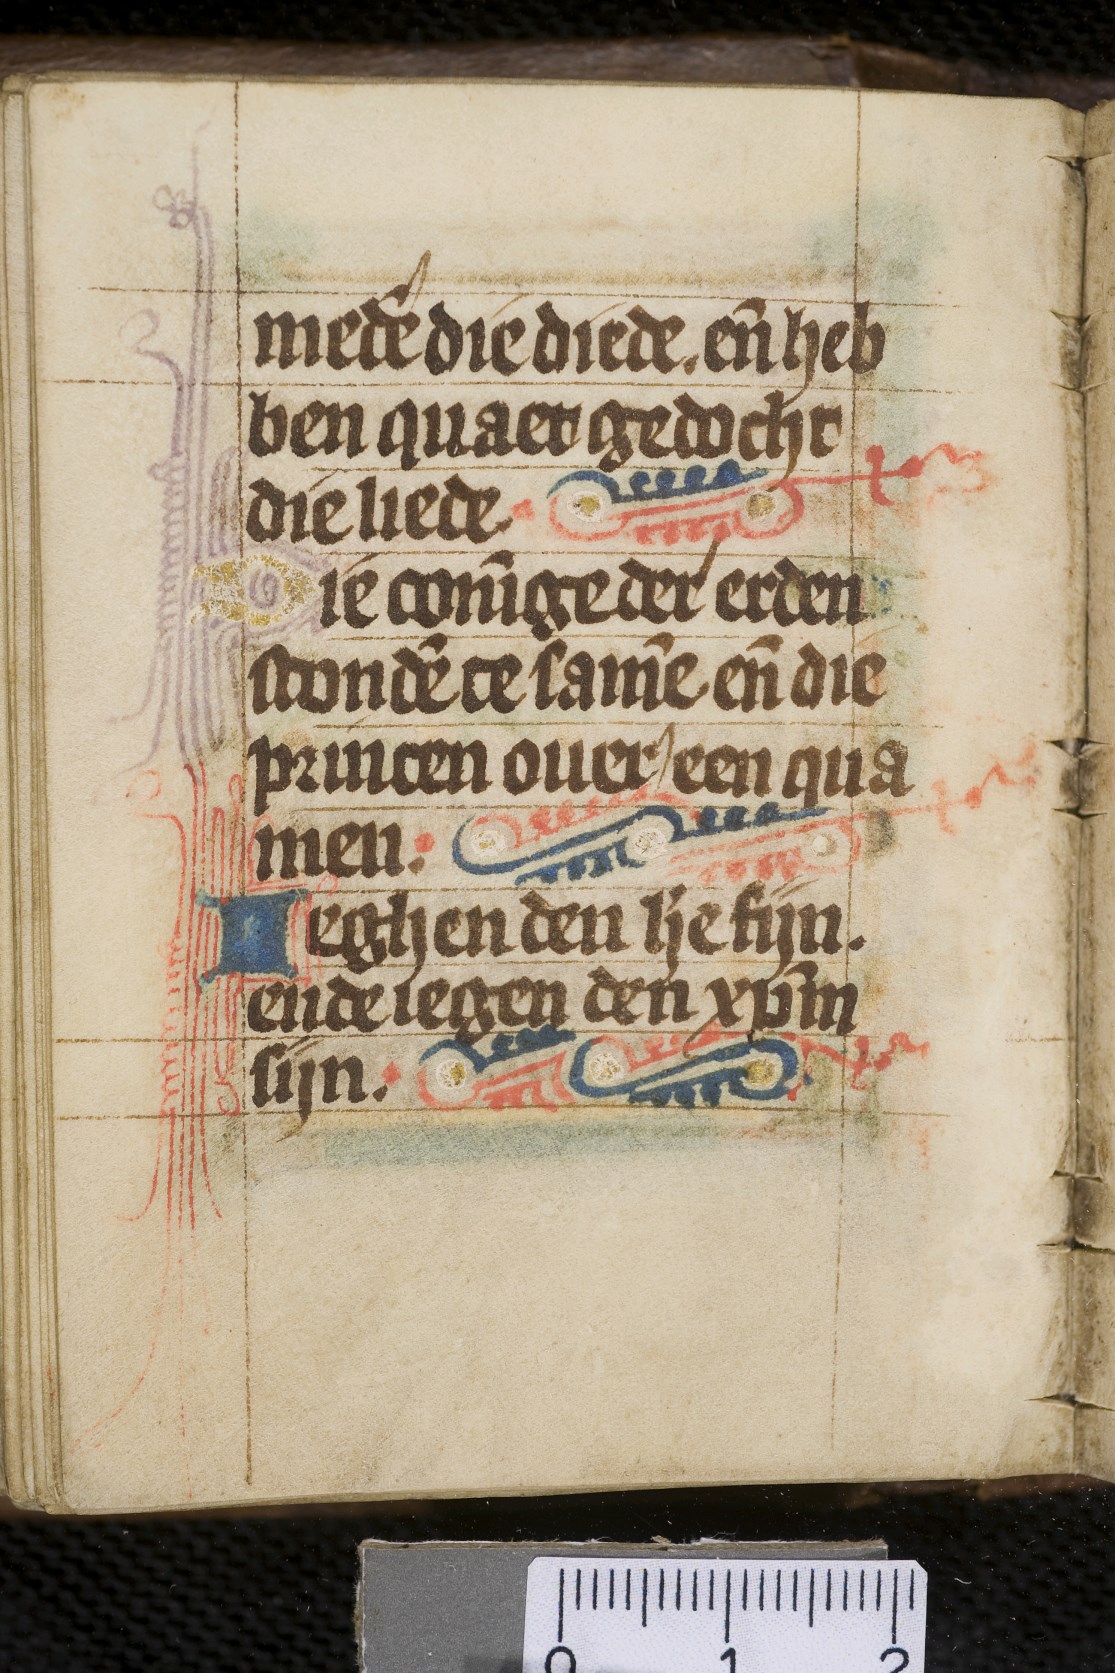 medē die diede. en̄ heb
ben quaet gedocht
die liede.
Die coni̅ge der erden
stondē te same̅ en̄ die
princen ouer een qua
men.
Ieghen den lje sijn.
ende iegen den xp̄m
sijn.
0 1 2